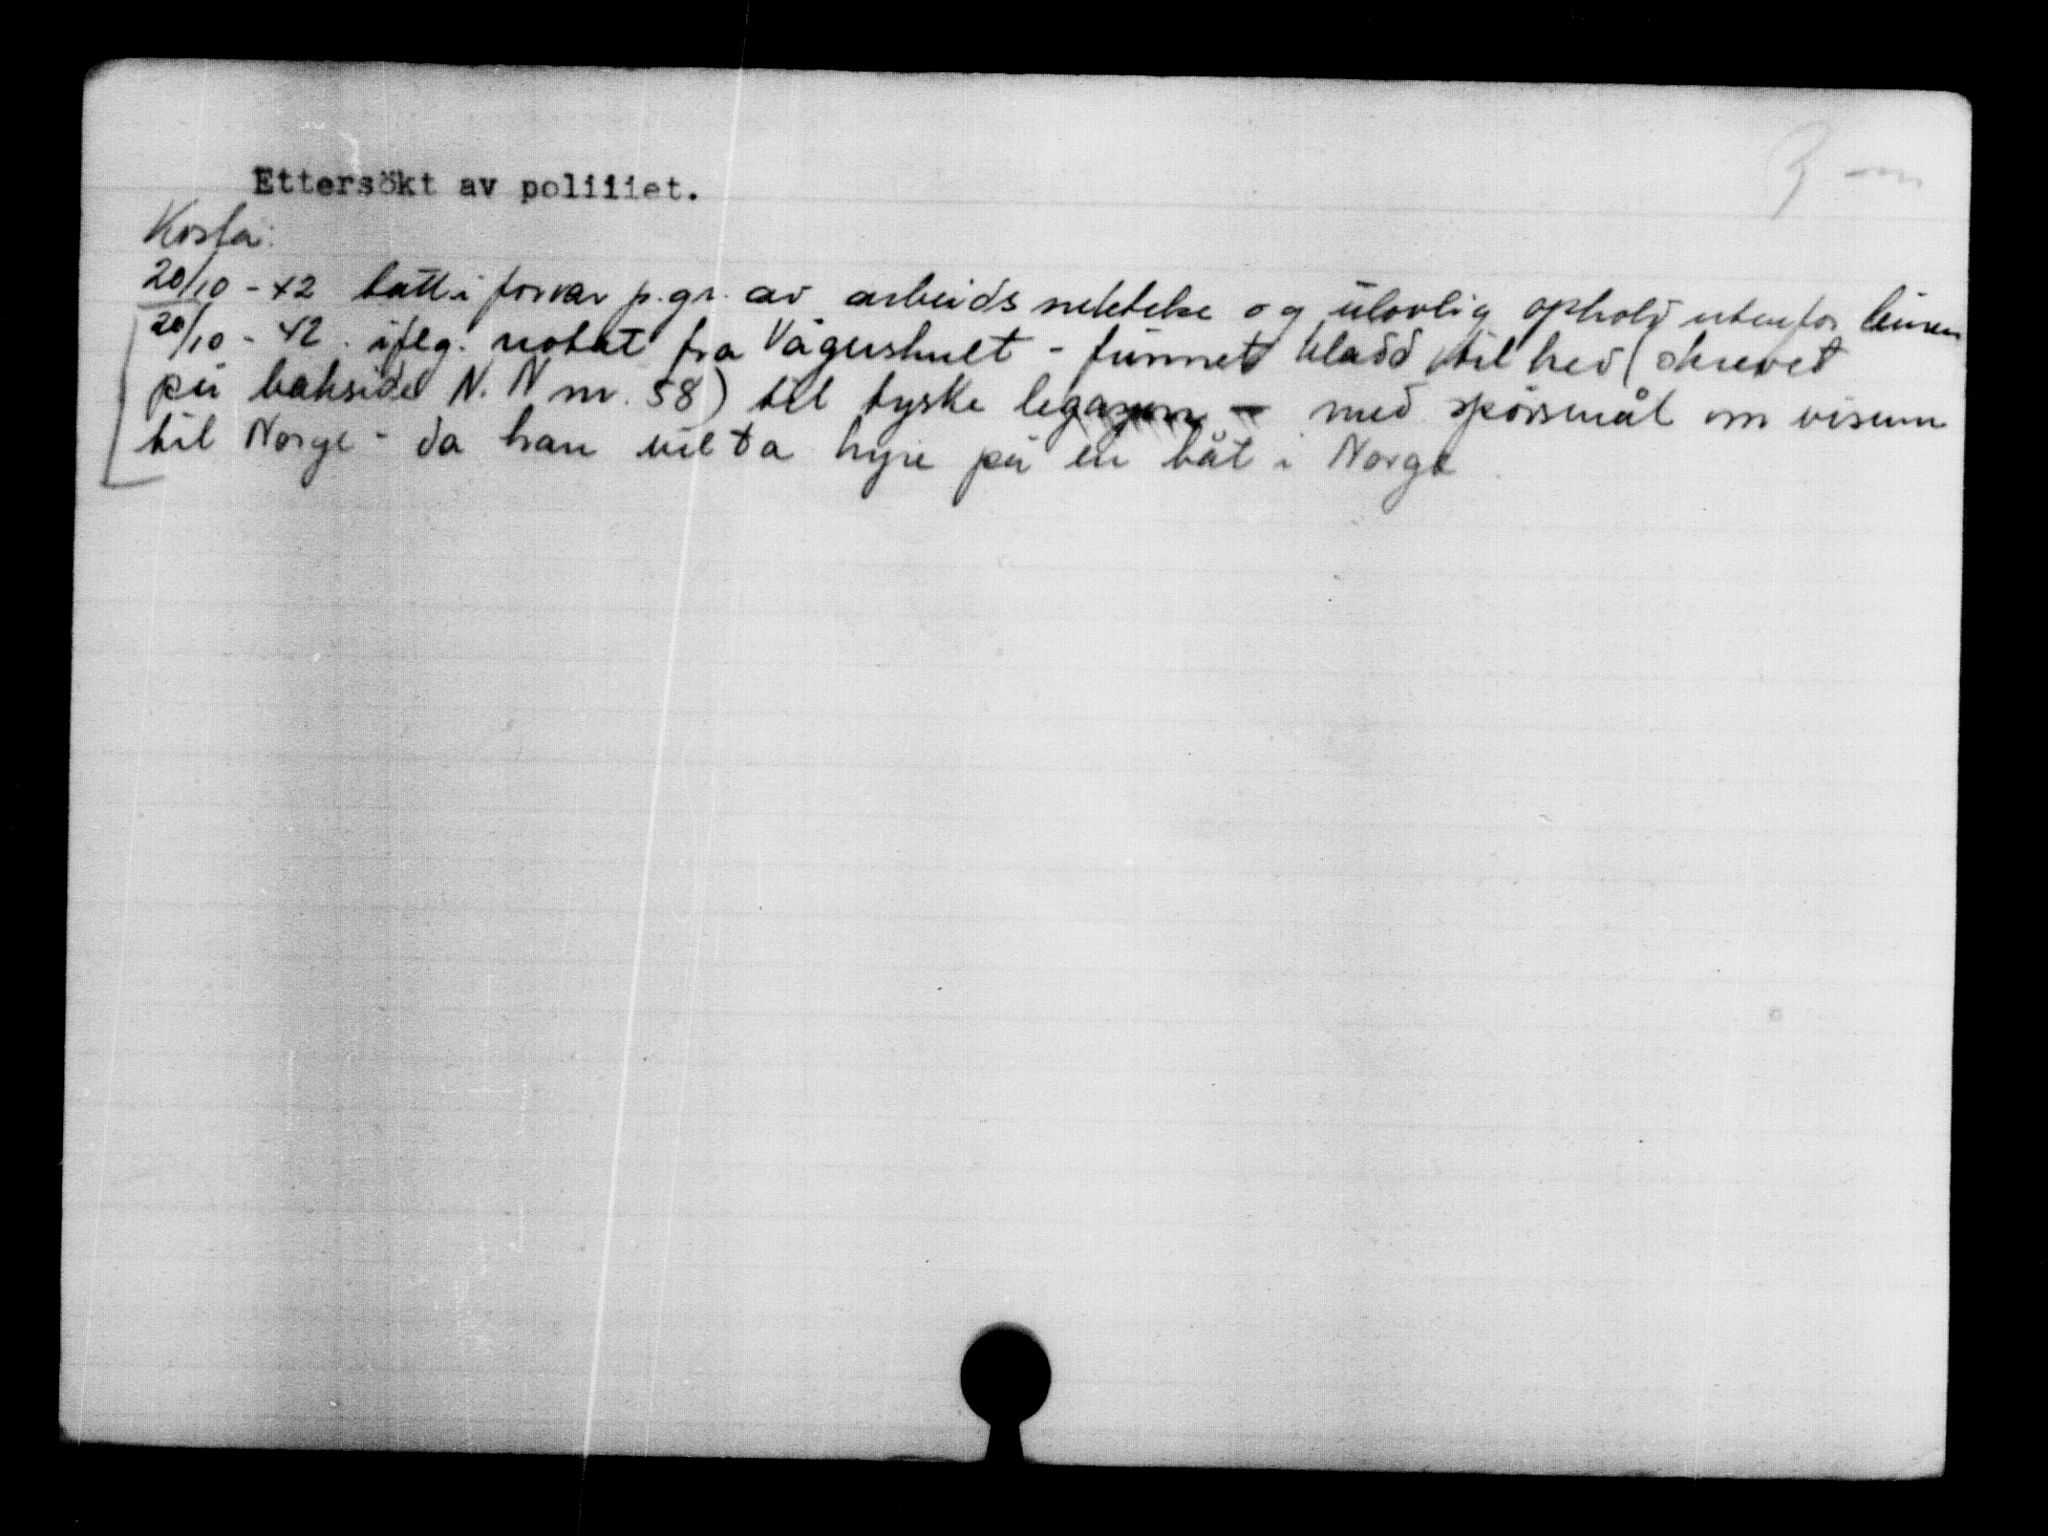 Ettersökt av poliiiet.
Kosta:
20/10 - 42 tatt i forvar p.gr. av arbeidsnektelse og ulovlig ophold utenfor leiren
20/10 - 42. iflg. notat fra Vågershult - funnet kladd til hed (skrevet
på bakside N. N nr. 58) til tyske legasjon - med spörsmål om visum
til Norge - da han vil ta hyre på en båt i Norge.